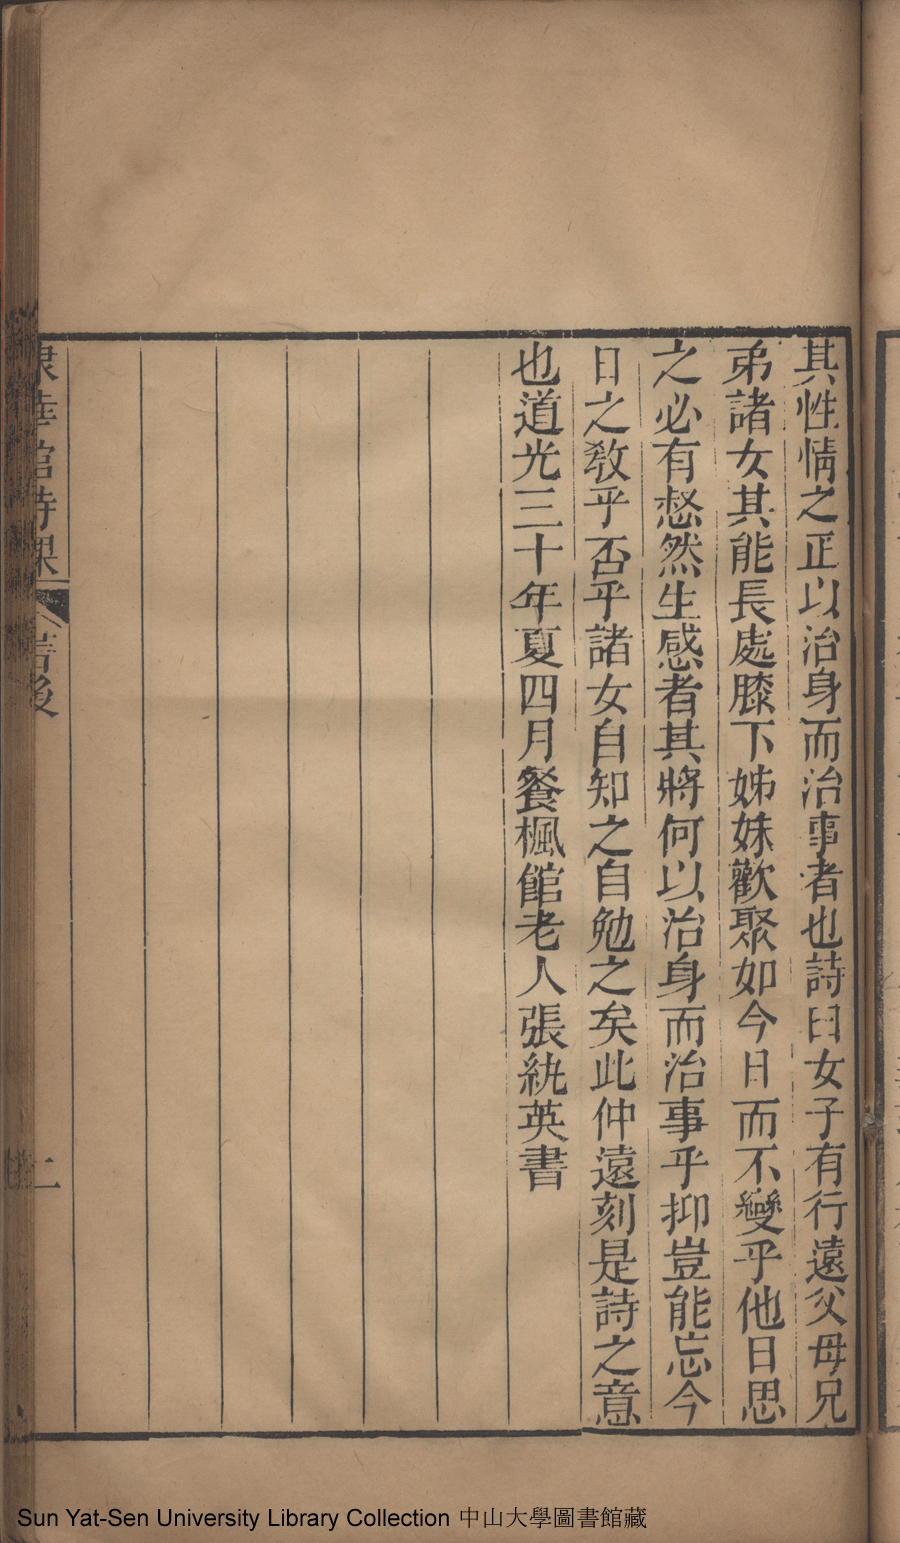 其性情之正以治身而治事者也詩曰女子有行遠父母兄
弟諸女其能長處膝下姊妹歡聚如今日而不變乎他日思
之必有愁然生感者其將何以治身而治事乎抑豈能忘今
日之敎乎否乎諸女自知之自勉之矣此仲遠刻是詩之意
也道光三十年夏四月餐楓館老人張䊵英書
棣華館詩課
書後
二
Sun Yat-Sen University Library Collection 中山大學圖書館藏